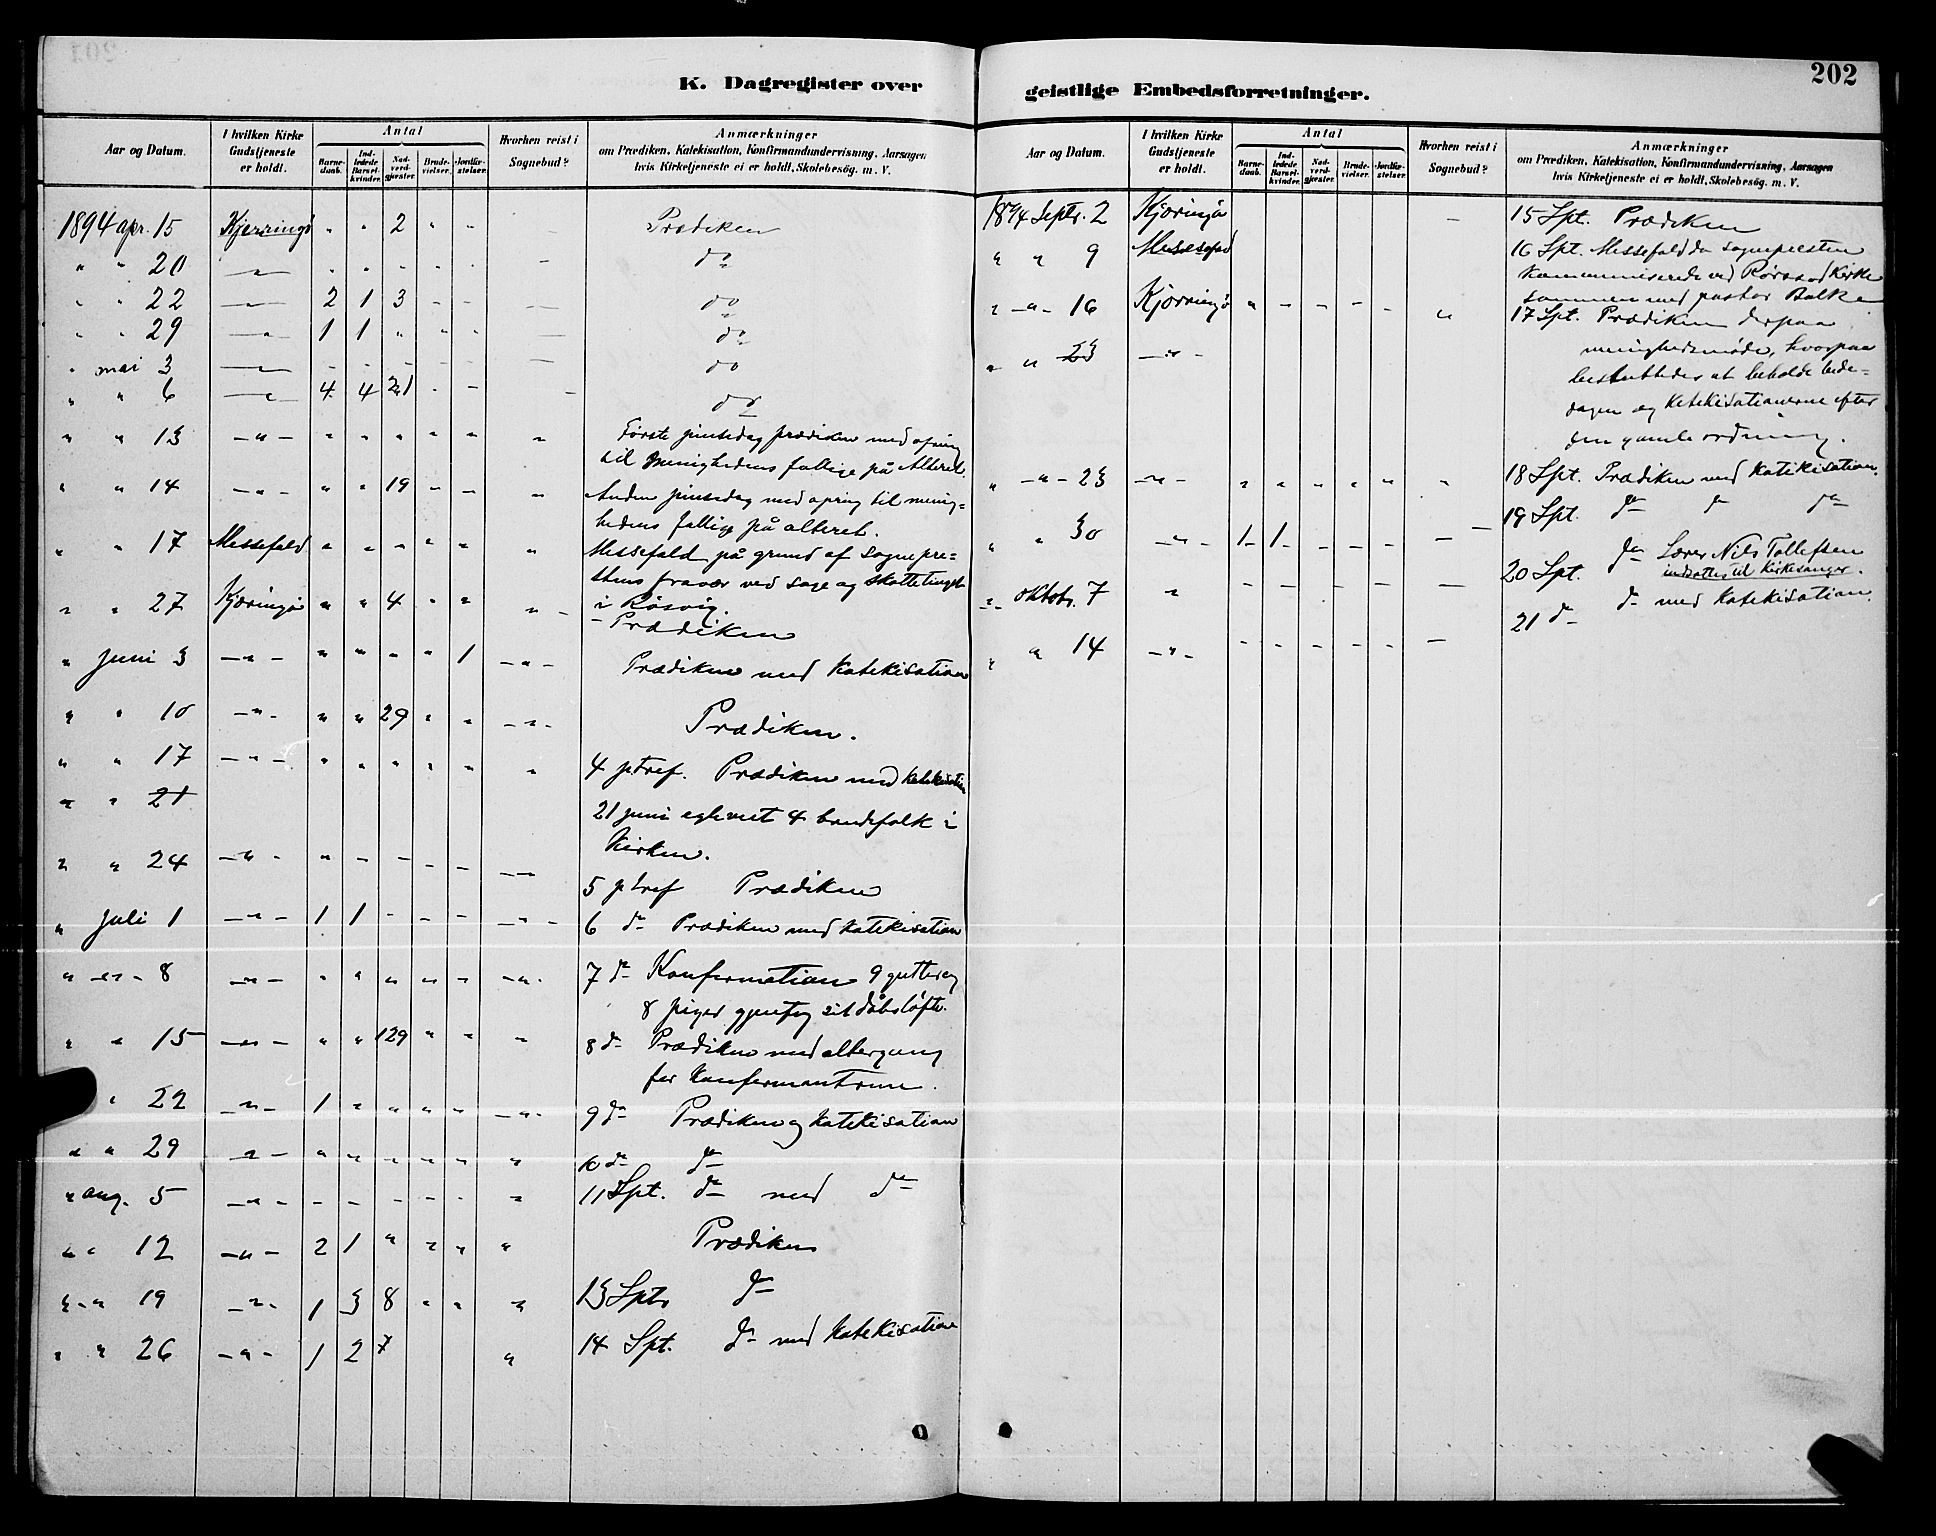 202
K. Dagregister over
Aar og Datum.
I hvilken Kirke Gudstjeneste er holdt.
Antal
Barne-daab.
Ind-ledede Barsel-kvinder.
Nad-verd-gjæster.
Brude-vielser.
Jordfæ-stelser.
Hvorhen reist i Sognebud?
Anmærkninger
om Prædiken, Katekisation, Konfirmandundervisning, Aarsagen
hvis Kirketjeneste ei er holdt, Skolebesøg. m. V.
1894 apr. 15 Kjerringø " " 2 " " Prædiken
" " 20 — " — " " " " " — do
" " 22 — " — 2 1 3 - - — do
" " 29 — " — 1 1 " " " — do
" mai 3 — — - - - - - — do
" " 6 — " — 4 4 21 - - — do
" " 13 — " — " " " " " " Første pintsedag prædiken med ofring
til Menighedens fattige på Alteret.
" " 14 — " — " " 19 - - " Anden pintsedag med ofring til menig=
hedens fattige på alteret.
" " 17 Messefald " " " " " " Messefald på grund af Sognepre=
stens fravær ved sage og skattetinget
i Røsvig.
" " 27 Kjæringø " " 4 " " " — Prædiken
" Juni 3 — " — " " " " 1 — " — Prædiken med Katekisation
" " 10 — " — " " 29 " " — " — Prædiken.
" " 17 — " — " " " " " " 4 p tref. Prædiken med katekisation
" " 21 21 juni egteviet 4 brudefolk i
Kirken.
" " 24 — " — " - - - - — 5 p tref Prædiken
" Juli 1 — " — 1 1 - - - — " — 6 do Prædiken med katekisation
" — " — 8 — " — " " " " " — " — 7 do Konfirmation 9 gutter og
8 piger gjentog sit dåbsløfte.
" " 15 — " — " " 129 " " " 8 do Prædiken med altergang
for Konfirmanterne.
" 22 — " — 1 " " " " — " — 9 do Prædiken og katekisation
" " 29 — " — " " " " " " 10 do do
" aug. 5 — " — - - - - - " 11 Spt. do med do
" " 12 — " — 2 1 " " " " Prædiken
" " 19 — " — 1 3 8 " " " 13 Spt. do
" " 26 — " — 1 2 7 " 14 Spt. do med katekisation
geistlige Embedsforretninger.
Aar og Datum.
I hvilken Kirke Gudstjeneste er holdt.
Antal
Barne-daab.
Ind-ledede Barsel-kvinder.
Nad-verd-gjæster.
Brude-vielser.
Jordfæ-stelser.
Hvorhen reist i Sognebud?
Anmærkninger
om Prædiken, Katekisation, Konfirmandundervisning, Aarsagen
hvis Kirketjeneste ei er holdt, Skolebesøg. m. V.
1894 Septr. 2 Kjæringø — 15 Spt. Prædiken
" " 9 Messefald 16 Spt. Messefald da sognepresten
kommuniserede ved Kirke
sammen med pastor Balke
" — " — 16 Kjærringø " - - - - " 17 Spt. Prædiken derpaa
menighedsmøde, hvorpaa
besluttedes at beholde bede=
dagen og Katekisationerne efter
den gamle ordning.
" " 23 — " —
" — " — 23 — " — " " " " " " 18 Spt. Prædiken med katekisation.
" " 30 — " — 1 1 - - - — 19 Spt. do do do
" oktobr. 7 " - - - - - — 20 Spt. do Lærer Nils Tollefsen
indsattes til Kirkesanger.
" " 14 — " — - - - - - — 21 do do med Katekisation.